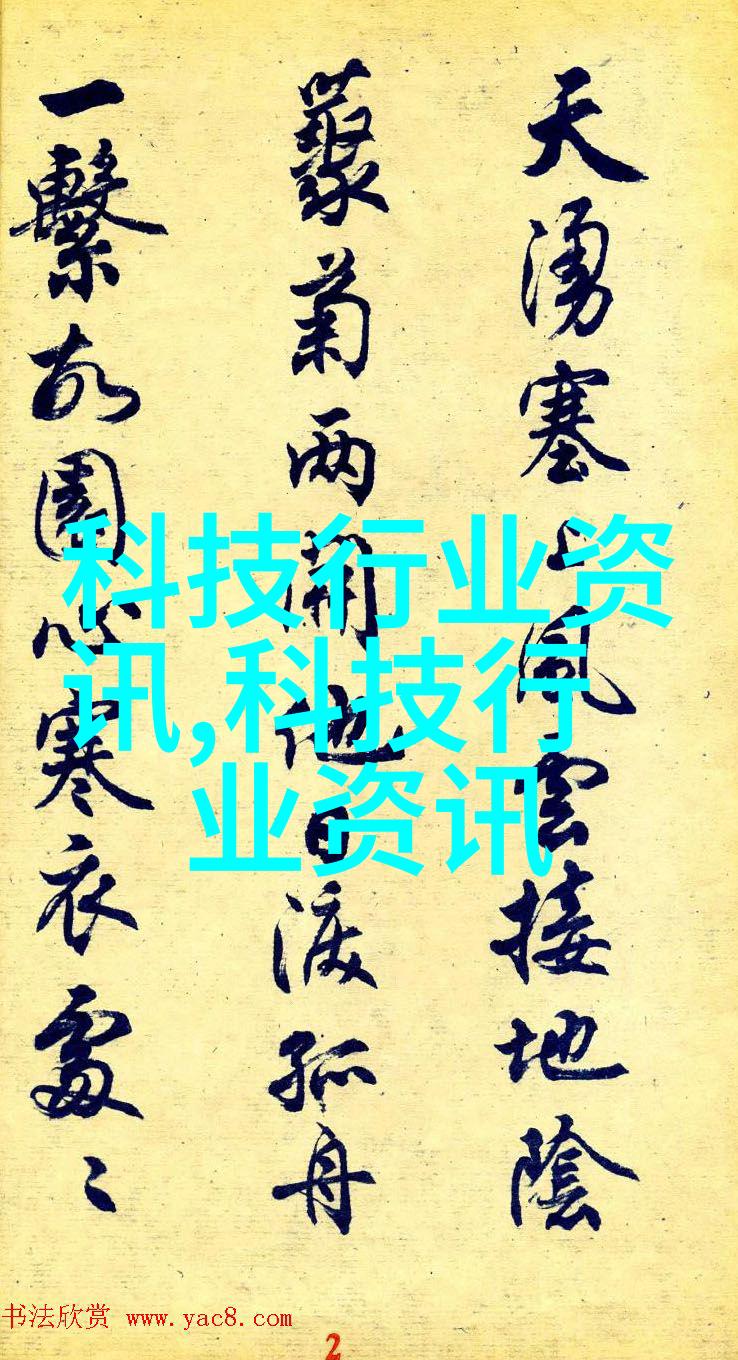 天湧塞上風雲接地陰
叢菊两開他日淚孤舟
一繫故園心寒衣處〻
科技行业资
讯,科技行
业资讯
书法欣赏 www.yac8.com
2